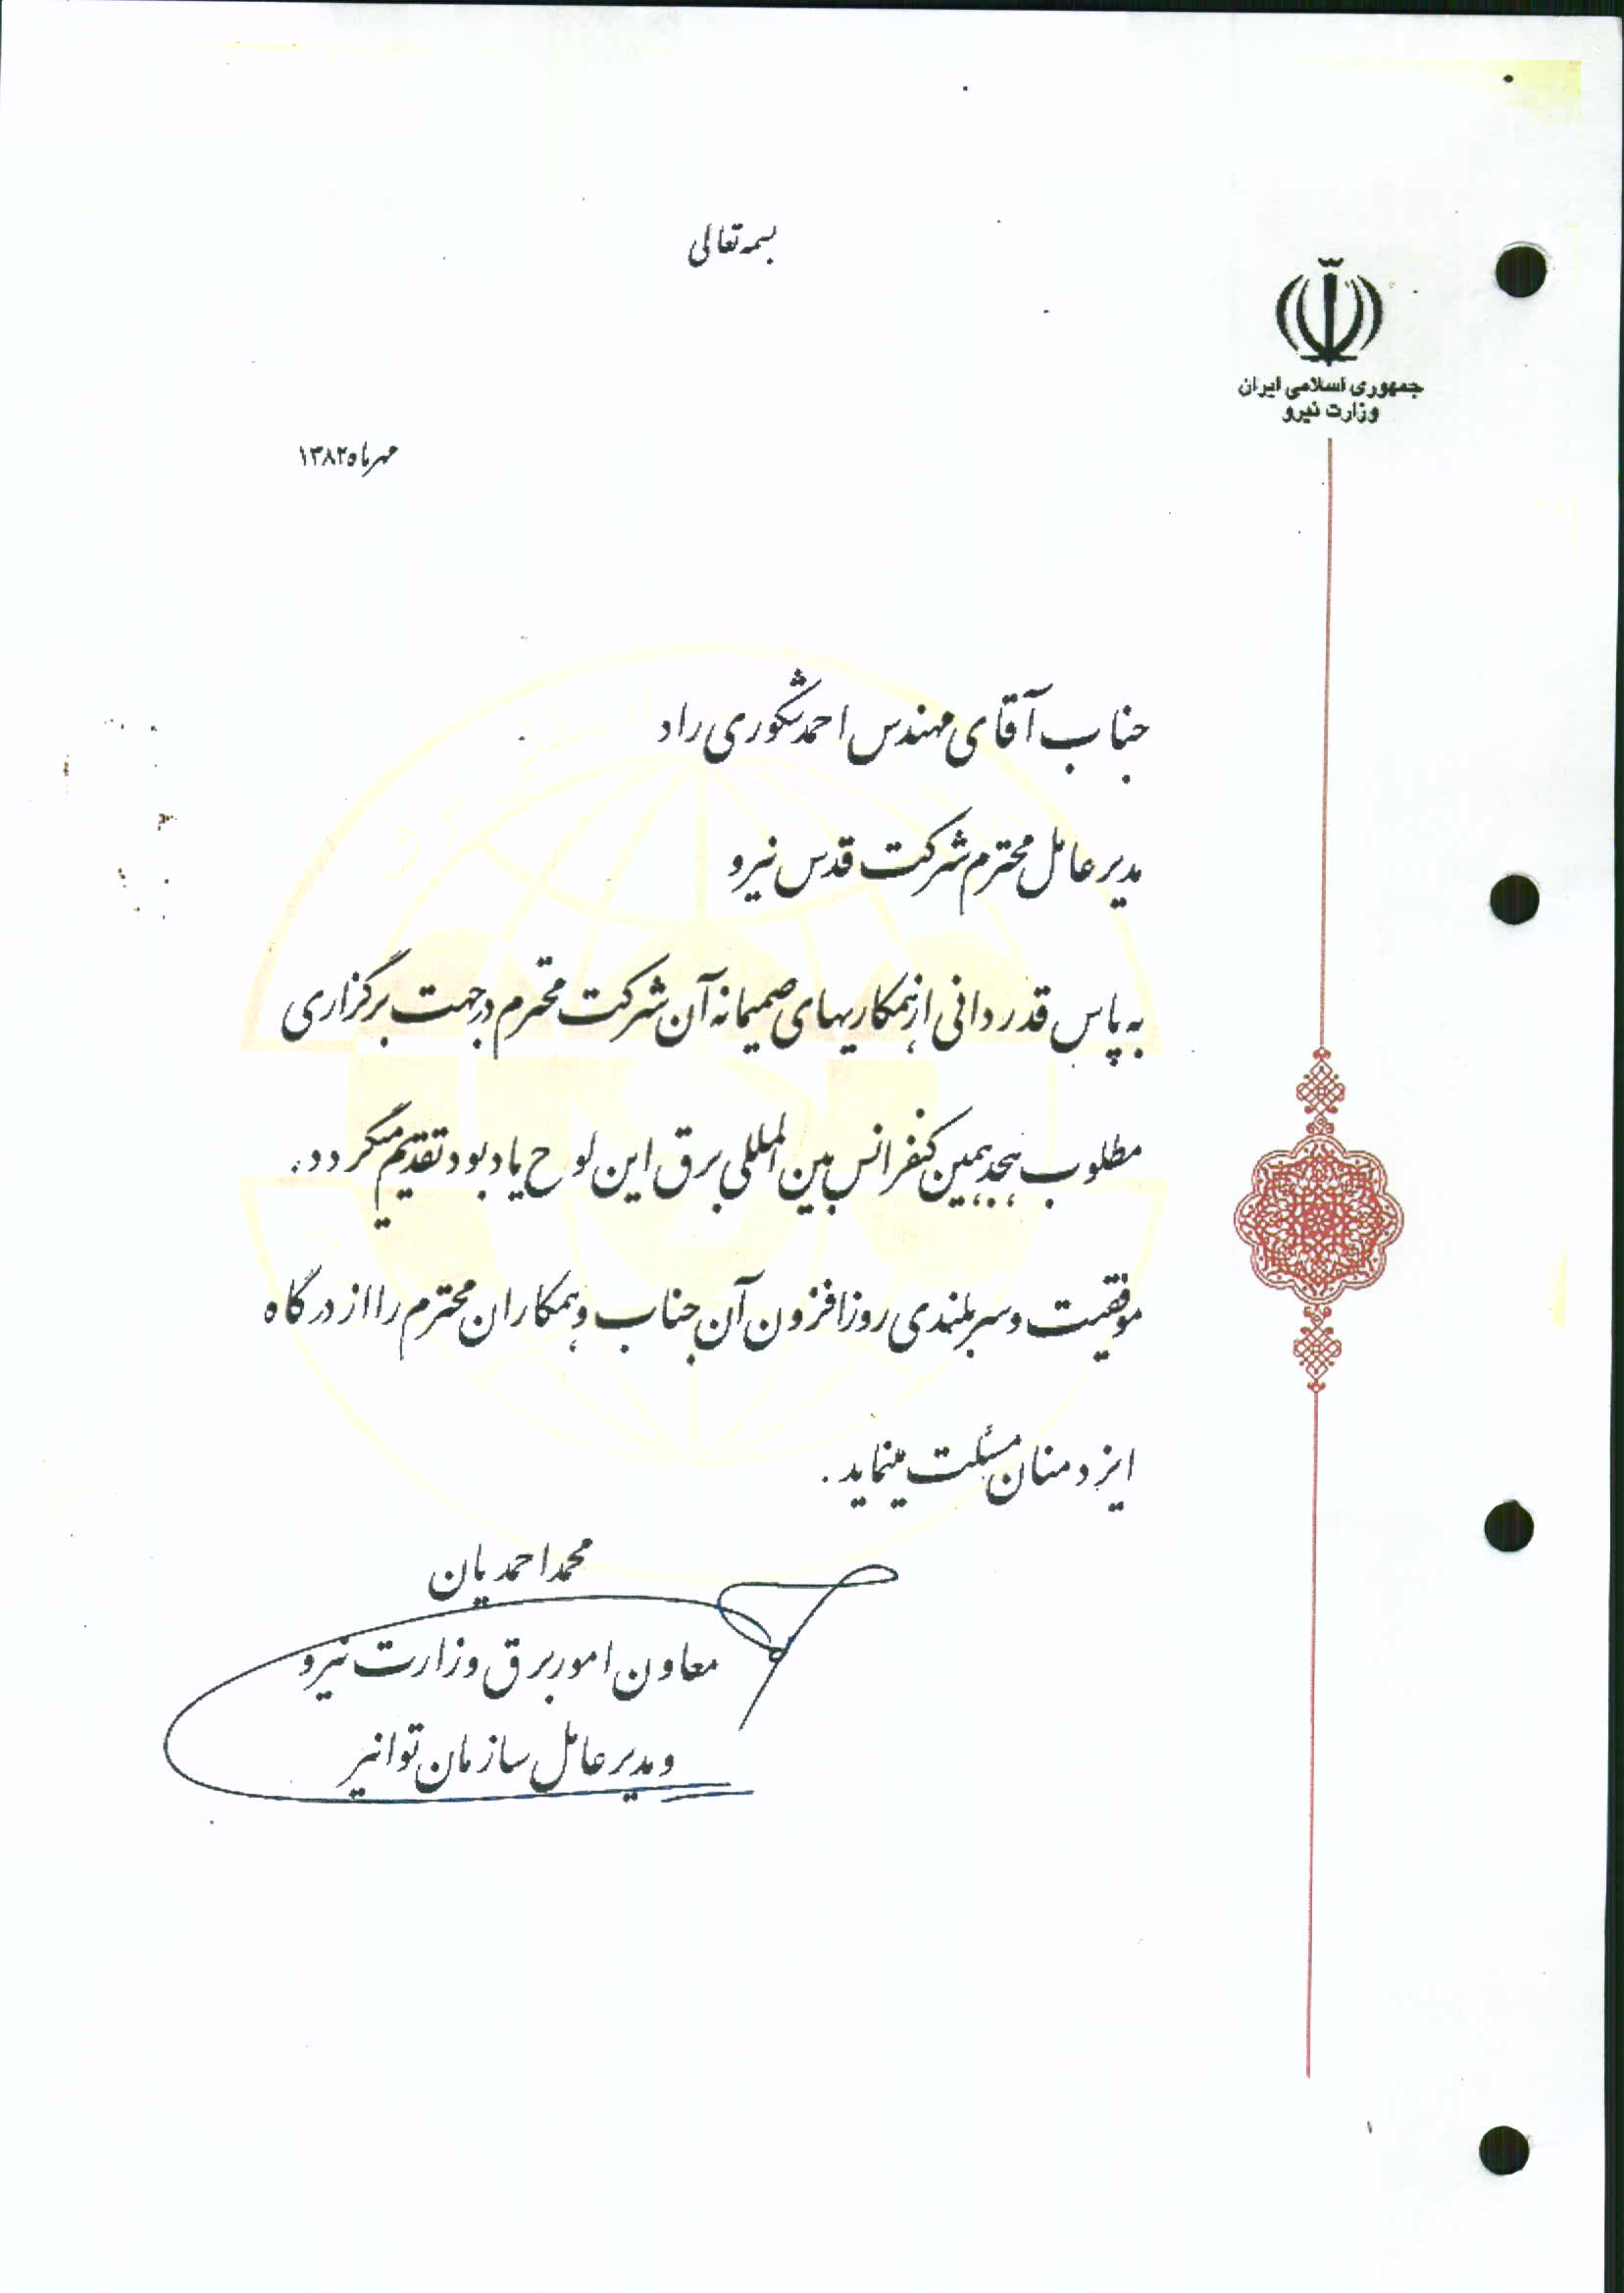 بسمه تعالی
جمهوری اسلامی ایران
وزارت نیرو
مهرماه ۱۳۸۲
جناب آقای مهندس احمد شکوری راد
مدیر عامل محترم شرکت قدس نیرو
به پاس قدردانی از همکاریهای صمیمانه آن شرکت محترم در جهت برگزاری
مطلوب هجدهمین کنفرانس بین المللی برق این لوح یادبود تقدیم میگردد.
موفقیت و سربلندی روزافزون آن جناب و همکاران محترم را از درگاه
ایزد منان مسئلت مینماید.
محمد احمدیان
معاون امور برق وزارت نیرو
و مدیر عامل سازمان توانیر